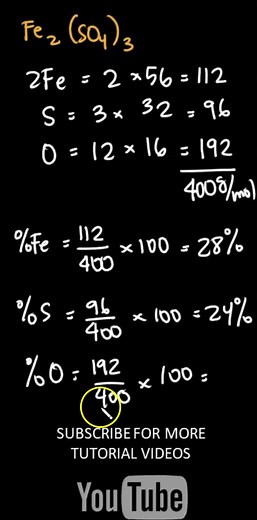 Fe₂(SO₄)₃
2Fe = 2 × 56 = 112
S = 3 × 32 = 96
O = 12 × 16 = 192
400g/mol
%Fe = 112/400 × 100 = 28%
%S = 96/400 × 100 = 24%
%O = 192/400 × 100 =
SUBSCRIBE FOR MORE
TUTORIAL VIDEOS
YouTube